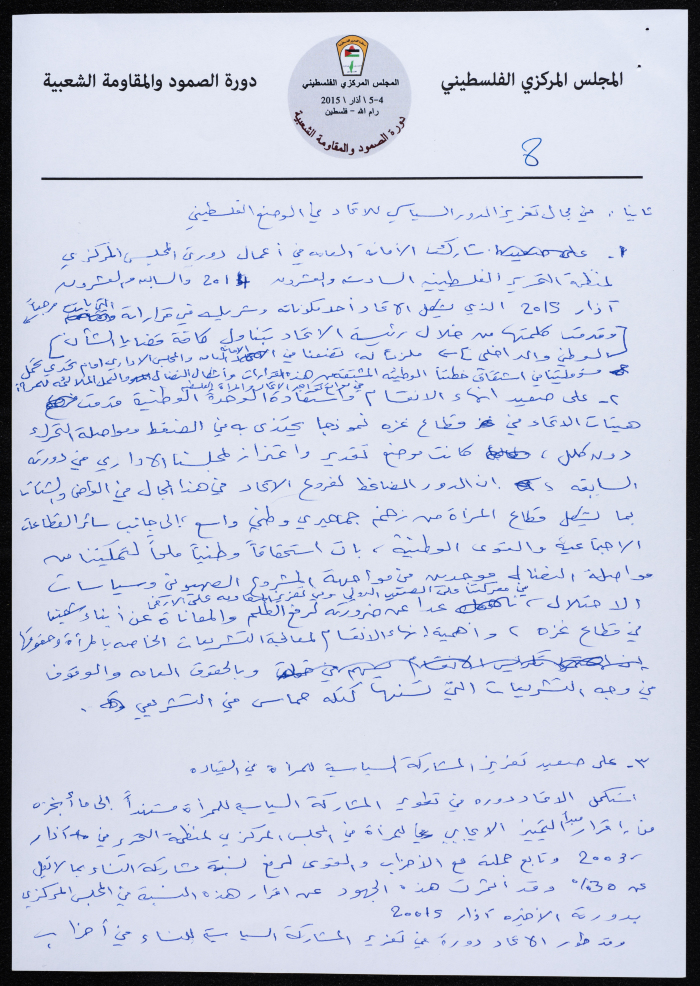 المجلس المركزي الفلسطيني
المجلس المركزي الفلسطيني
4-5 \ اذار \ 2015
رام الله - فلسطين
دورة الصمود والمقاومة الشعبية
دورة الصمود والمقاومة الشعبية
8
ثانيا : في مجال تعزيز الدور السياسي للاتحاد في الوضع الفلسطيني
1- شاركت الأمانة العامة في أعمال دورتي المجلس المركزي
لمنظمة التحرير الفلسطينية السادسة والعشرون 2014 والسابعة والعشرون
آذار 2015 الذي يشكل الاتحاد أحد مكوناته وشريك في قراراته
[وقدمت كلمتها من خلال رئيسة الاتحاد بتناول كافة قضايا الشأن]
الوطني والداخلي ملزمة له، تضعنا في الأمانة العامة والمجلس الاداري امام تحدي تحمل
مسؤوليتنا في اشتقاق خطتنا الوطنية المشتقة من هذه القرارات وأشكال النضال
2- على صعيد انهاء الانقسام واستعادة الوحدة الوطنية قدمت
هيئات الاتحاد في قطاع غزه نموذجا يحتذى به في الضغط ومواصلة التحرك
دون كلل، كانت موضع تقدير واعتزاز لمجلسنا الاداري في دورته
السابقة، ان الدور الضاغط لفروع الاتحاد في هذا المجال في الوطن والشتات
بما يشكل قطاع المرأة من زخم جماهيري وطني واسع، إلى جانب سائر القطاعات
الاجتماعية والقوى الوطنية، بات استحقاقاً وطنياً ملحاً لتمكيننا من
مواصلة النضال موحدين في مواجهة المشروع الصهيوني وسياسات
في معركتنا على الصعيد الدولي وفي تعزيز المقاومة على الأرض
الاحتلال، عدا عن ضرورته لرفع الظلم والمعاناة عن أبناء شعبنا
في قطاع غزه، واهمية إنهاء الانقسام لمعالجة التشريعات الخاصة بالمرأة وحقوقها
وبالحقوق العامه والوقوف
في وجه التشريعات التي تسنها كتلة حماس في التشريعي.
3- على صعيد تعزيز المشاركة السياسية للمرأة في القياده
استكمل الاتحاد دوره في تطوير المشاركة السياسية للمرأة مستنداً إلى ما أنجزه
من إقرار مبدأ التمييز الايجابي للمرأة في المجلس المركزي لمنظمة التحرير في آذار
2003 وتابع حملته مع الأحزاب والقوى لرفع نسبة مشاركة النساء بما لا يقل
عن 30% وقد أثمرت هذه الجهود عن اقرار هذه النسبة في المجلس المركزي
بدورته الأخيرة آذار 2015
وقد طور الاتحاد دوره في تعزيز المشاركة السياسية للنساء في أحزاب